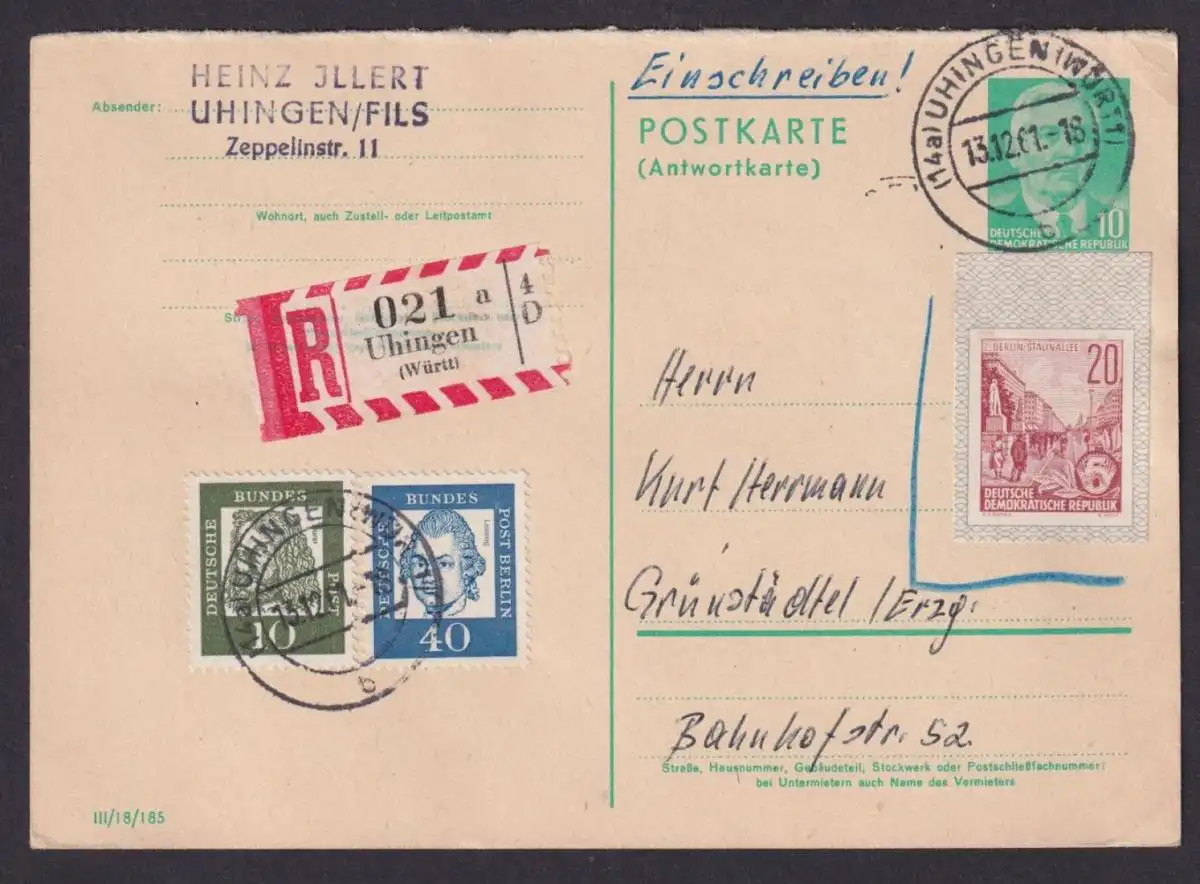 HEINZ JLLERT
Absender:
UHINGEN/FILS
Zeppelinstr. 11
Wohnort, auch Zustell- oder Leitpostamt
R
021 a
Uhingen
(Württ)
4
D
DEUTSCHE
BUNDES
POST
10
DEUTSCHE
BUNDES
POST BERLIN
Lessing
40
(14a) UHINGEN (WÜRTT)
13.12.61.-18
b
III/18/185
Einschreiben!
POSTKARTE
(Antwortkarte)
(14a) UHINGEN (WÜRTT)
13.12.61.-18
b
10
DEUTSCHE
DEMOKRATISCHE REPUBLIK
BERLIN-STALINALLEE
20
5
DEUTSCHE
DEMOKRATISCHE REPUBLIK
Herrn
Kurt Herrmann
Grünstädtel /Erzg.
Bahnhofstr. 52
Straße, Hausnummer, Gebäudeteil, Stockwerk oder Postschließfachnummer;
bei Untermietern auch Name des Vermieters